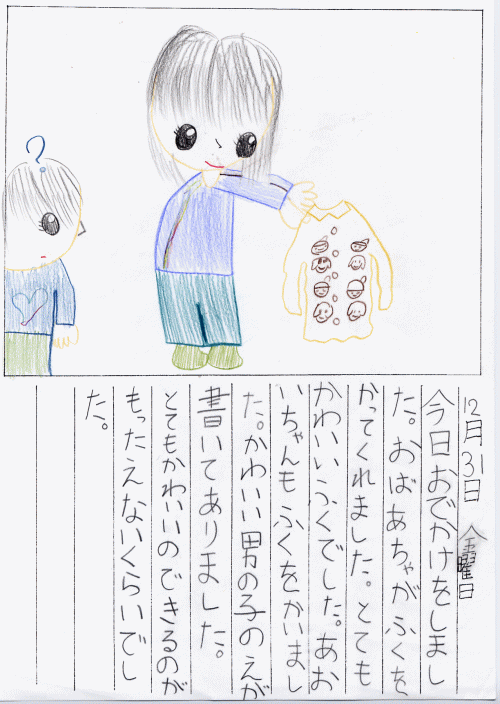 ?
12月31日 金曜日
今日おでかけをしまし
た。おばあちゃがふくを
かってくれました。とても
かわいいふくでした。あお
いちゃんもふくをかいまし
た。かわいい男の子のえが
書いてありました。
とてもかわいいのできるのが
もったえないくらいでし
た。